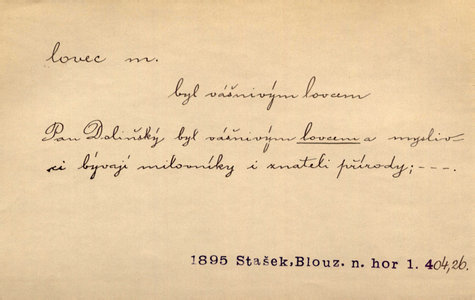 lovec m.
byl vášnivým lovcem
Pan Doliňský byl vášnivým lovcem a mysliv-
ci bývají milovníky i znateli přírody; ---.
1895 Stašek, Blouz. n. hor 1. 404,26.